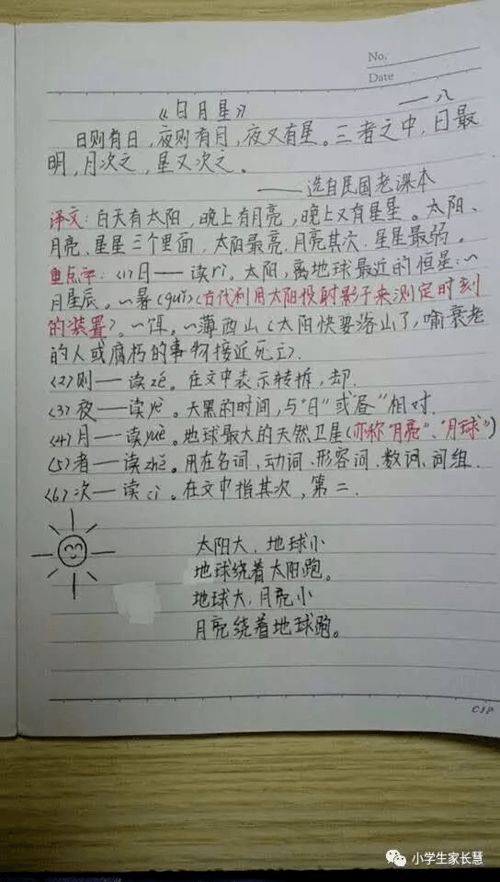 No.
Date
《日月星》
一八
日则有日，夜则有月，夜又有星。三者之中，日最
明，月次之，星又次之。
——选自民国老课本
译文：白天有太阳，晚上有月亮，晚上又有星星。太阳、
月亮、星星三个里面，太阳最亮，月亮其次，星星最弱。
重点字：(1)日——读rì。太阳，离地球最近的恒星：~
月星辰。~晷(guǐ)(古代利用太阳投射影子来测定时刻
的装置)。~饵。~薄西山(太阳快要落山了，喻衰老
的人或腐朽的事物接近死亡).
(2)则——读zé。在文中表示转折，却.
(3)夜——读yè。天黑的时间，与"日"或"昼"相对.
(4)月——读yuè。地球最大的天然卫星(亦称"月亮"、"月球")
(5)者——读zhě。用在名词、动词、形容词、数词、词组.
(6)次——读cì。在文中指其次，第二.
太阳大，地球小
地球绕着太阳跑。
地球大，月亮小
月亮绕着地球跑。
CJP
小学生家长慧